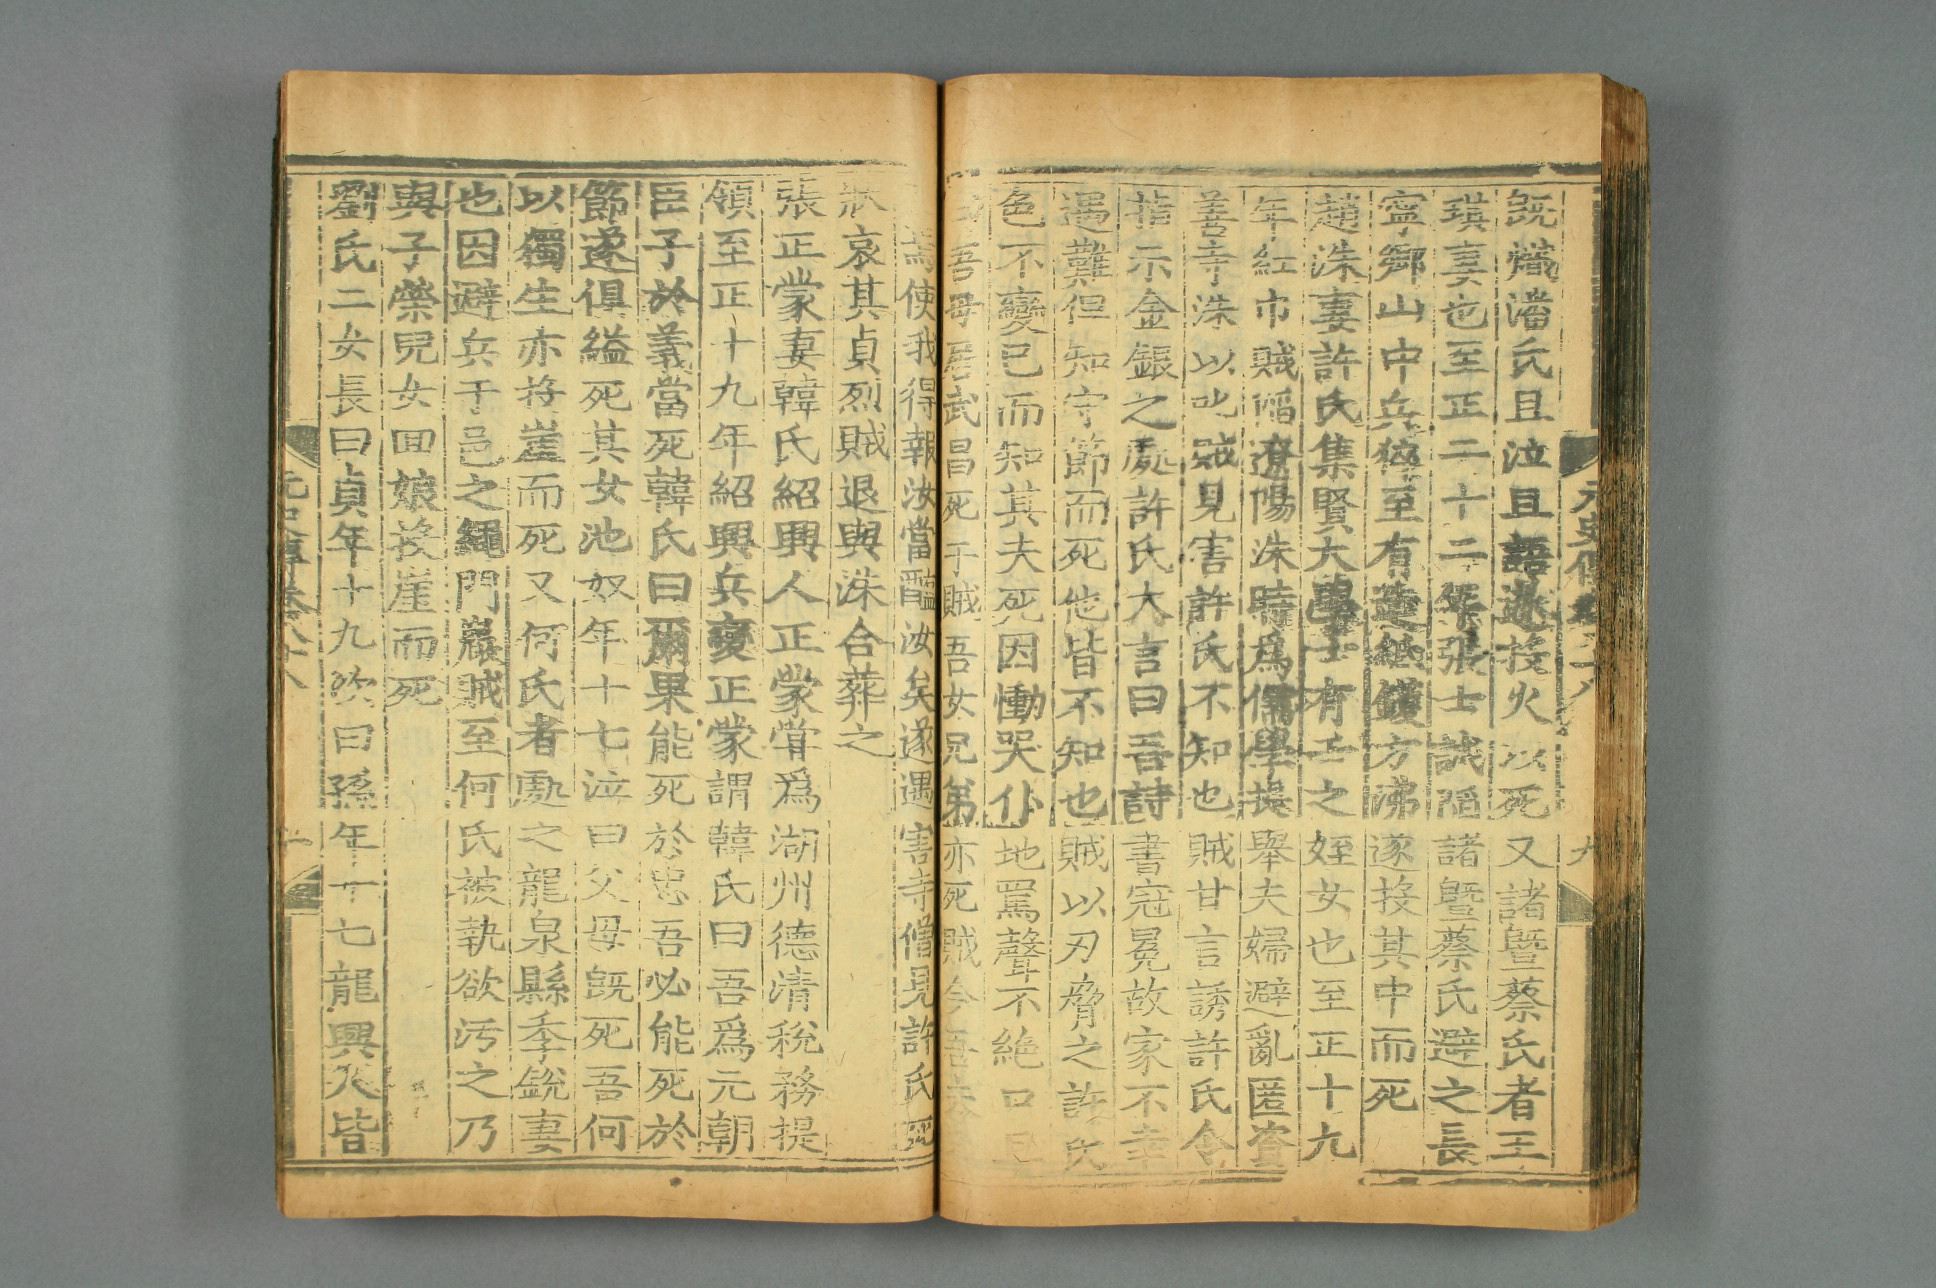 既熾潘氏且泣且語遂投火以死又諸暨蔡氏者王
琪妻也至正二十二年張士誠陷諸暨蔡氏避之長
寧鄉山中兵猝至有造紙鑊方沸遂投其中而死
趙洙妻許氏集賢大學士有壬之姪女也至正十九
年紅巾賊陷遼陽洙時爲儒學提舉夫婦避亂匿資
善寺洙以叱賊見害許氏不知也賊甘言誘許氏令
指示金銀之處許氏大言曰吾詩書冠冕故家不幸
遇難但知守節而死他皆不知也賊以刃脅之許氏
色不變已而知其夫死因慟哭仆地罵聲不絕口且
吾母居武昌死于賊吾女兄弟亦死賊今吾夫
焉使我得報汝當醢汝矣遂遇害寺僧見許氏死
狀哀其貞烈賊退與洙合葬之
張正蒙妻韓氏紹興人正蒙嘗爲湖州德清稅務提
領至正十九年紹興兵變正蒙謂韓氏曰吾爲元朝
臣子於義當死韓氏曰爾果能死於忠吾必能死於
節遂俱縊死其女池奴年十七泣曰父母既死吾何
以獨生亦投崖而死又何氏者處之龍泉縣季銳妻
也因避兵于邑之繩門巖賊至何氏被執欲污之乃
與子榮兒女回娘投崖而死
劉氏二女長曰貞年十九次曰孫年十七龍興人皆
元史傳卷八十八
九